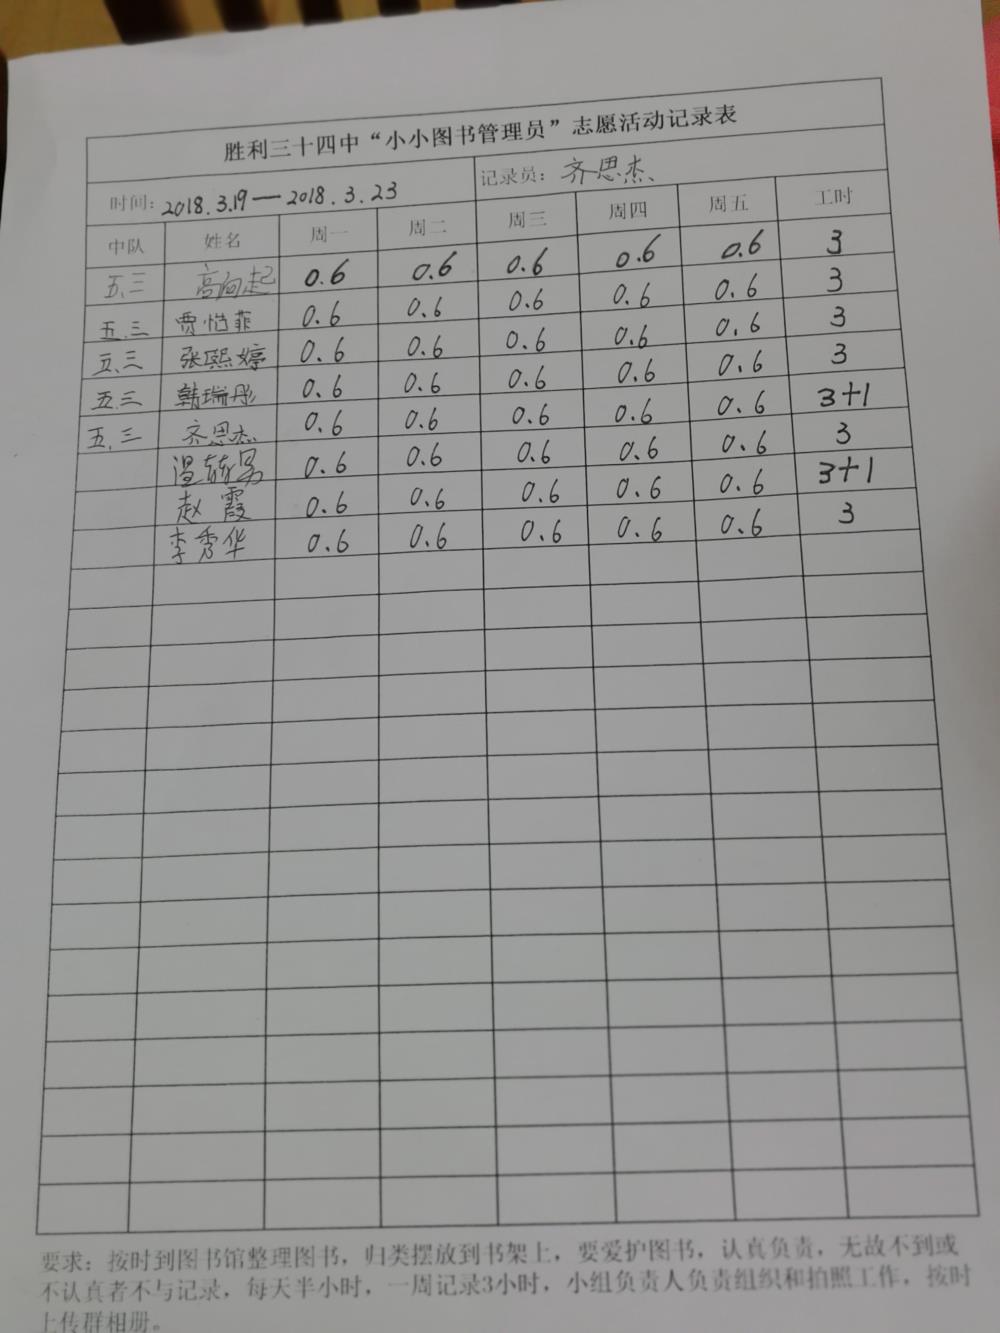 胜利三十四中“小小图书管理员”志愿活动记录表
时间：2018.3.19—2018.3.23 记录员：齐思杰
中队 姓名 周一 周二 周三 周四 周五 工时
五.三 高向起 0.6 0.6 0.6 0.6 0.6 3
五.三 贾恺菲 0.6 0.6 0.6 0.6 0.6 3
五.三 张熙婷 0.6 0.6 0.6 0.6 0.6 3
五.三 韩瑞彤 0.6 0.6 0.6 0.6 0.6 3
五.三 齐思杰 0.6 0.6 0.6 0.6 0.6 3+1
温 男 0.6 0.6 0.6 0.6 0.6 3
赵霞 0.6 0.6 0.6 0.6 0.6 3+1
李秀华 0.6 0.6 0.6 0.6 0.6 3
要求：按时到图书馆整理图书，归类摆放到书架上，要爱护图书，认真负责，无故不到或
不认真者不与记录，每天半小时，一周记录3小时，小组负责人负责组织和拍照工作，按时
上传群相册。